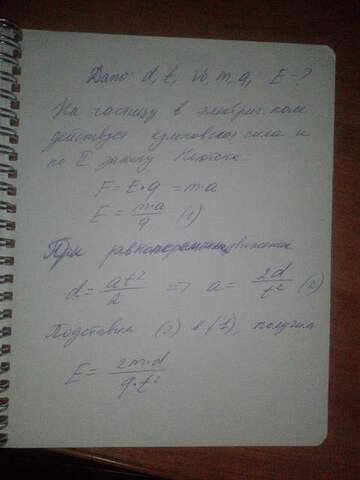 Дано: d, t, v₀, m, q, E-?
На частицу в электрич. поле
действует кулоновская сила и
по II закону Ньютона
F = E·q = m·a
E = m·a/q (1)
При движении
d = at²/2 => a = 2d/t² (2)
Подставим (2) в (1), получим
E = 2m·d/q·t²